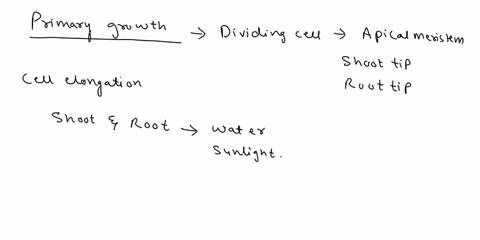 Primary growth → Dividing cell → Apical meristem
Shoot tip
Root tip
Cell elongation
Shoot & Root → water
Sunlight.